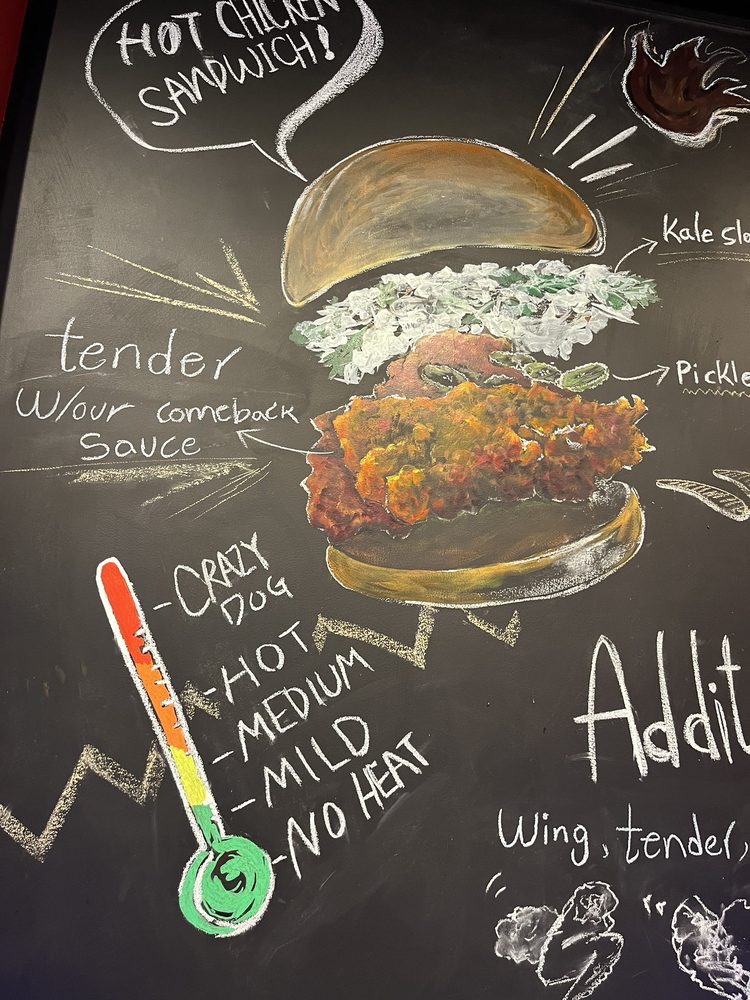 HOT CHICKEN
SANDWICH!
Kale
tender
w/our comeback
sauce
Pickle
CRAZY
DOG
HOT
MEDIUM
MILD
NO HEAT
Addit
Wing, tender,